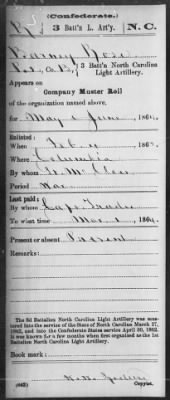 (Confederate.)
R 3 Batt'n L. Art'y. N.C.
Barney Rose
3 Batt'n North Carolina
Light Artillery.
Appears on
Company Muster Roll
of the organization named above,
for May & June, 1864.
Enlisted:
When Feb 11, 186
Where Columbia
By whom
Period War
Last paid:
By whom Capt
To what time Mar 1, 1864.
Present or absent Present
Remarks:
The 3d Battalion North Carolina Light Artillery was mus-
tered into the service of the State of North Carolina March 17,
1862, and into the Confederate States service April 30, 1862.
It was known for a few months when first organized as the 1st
Battalion North Carolina Light Artillery.
Book mark:
(642)
Copyist.